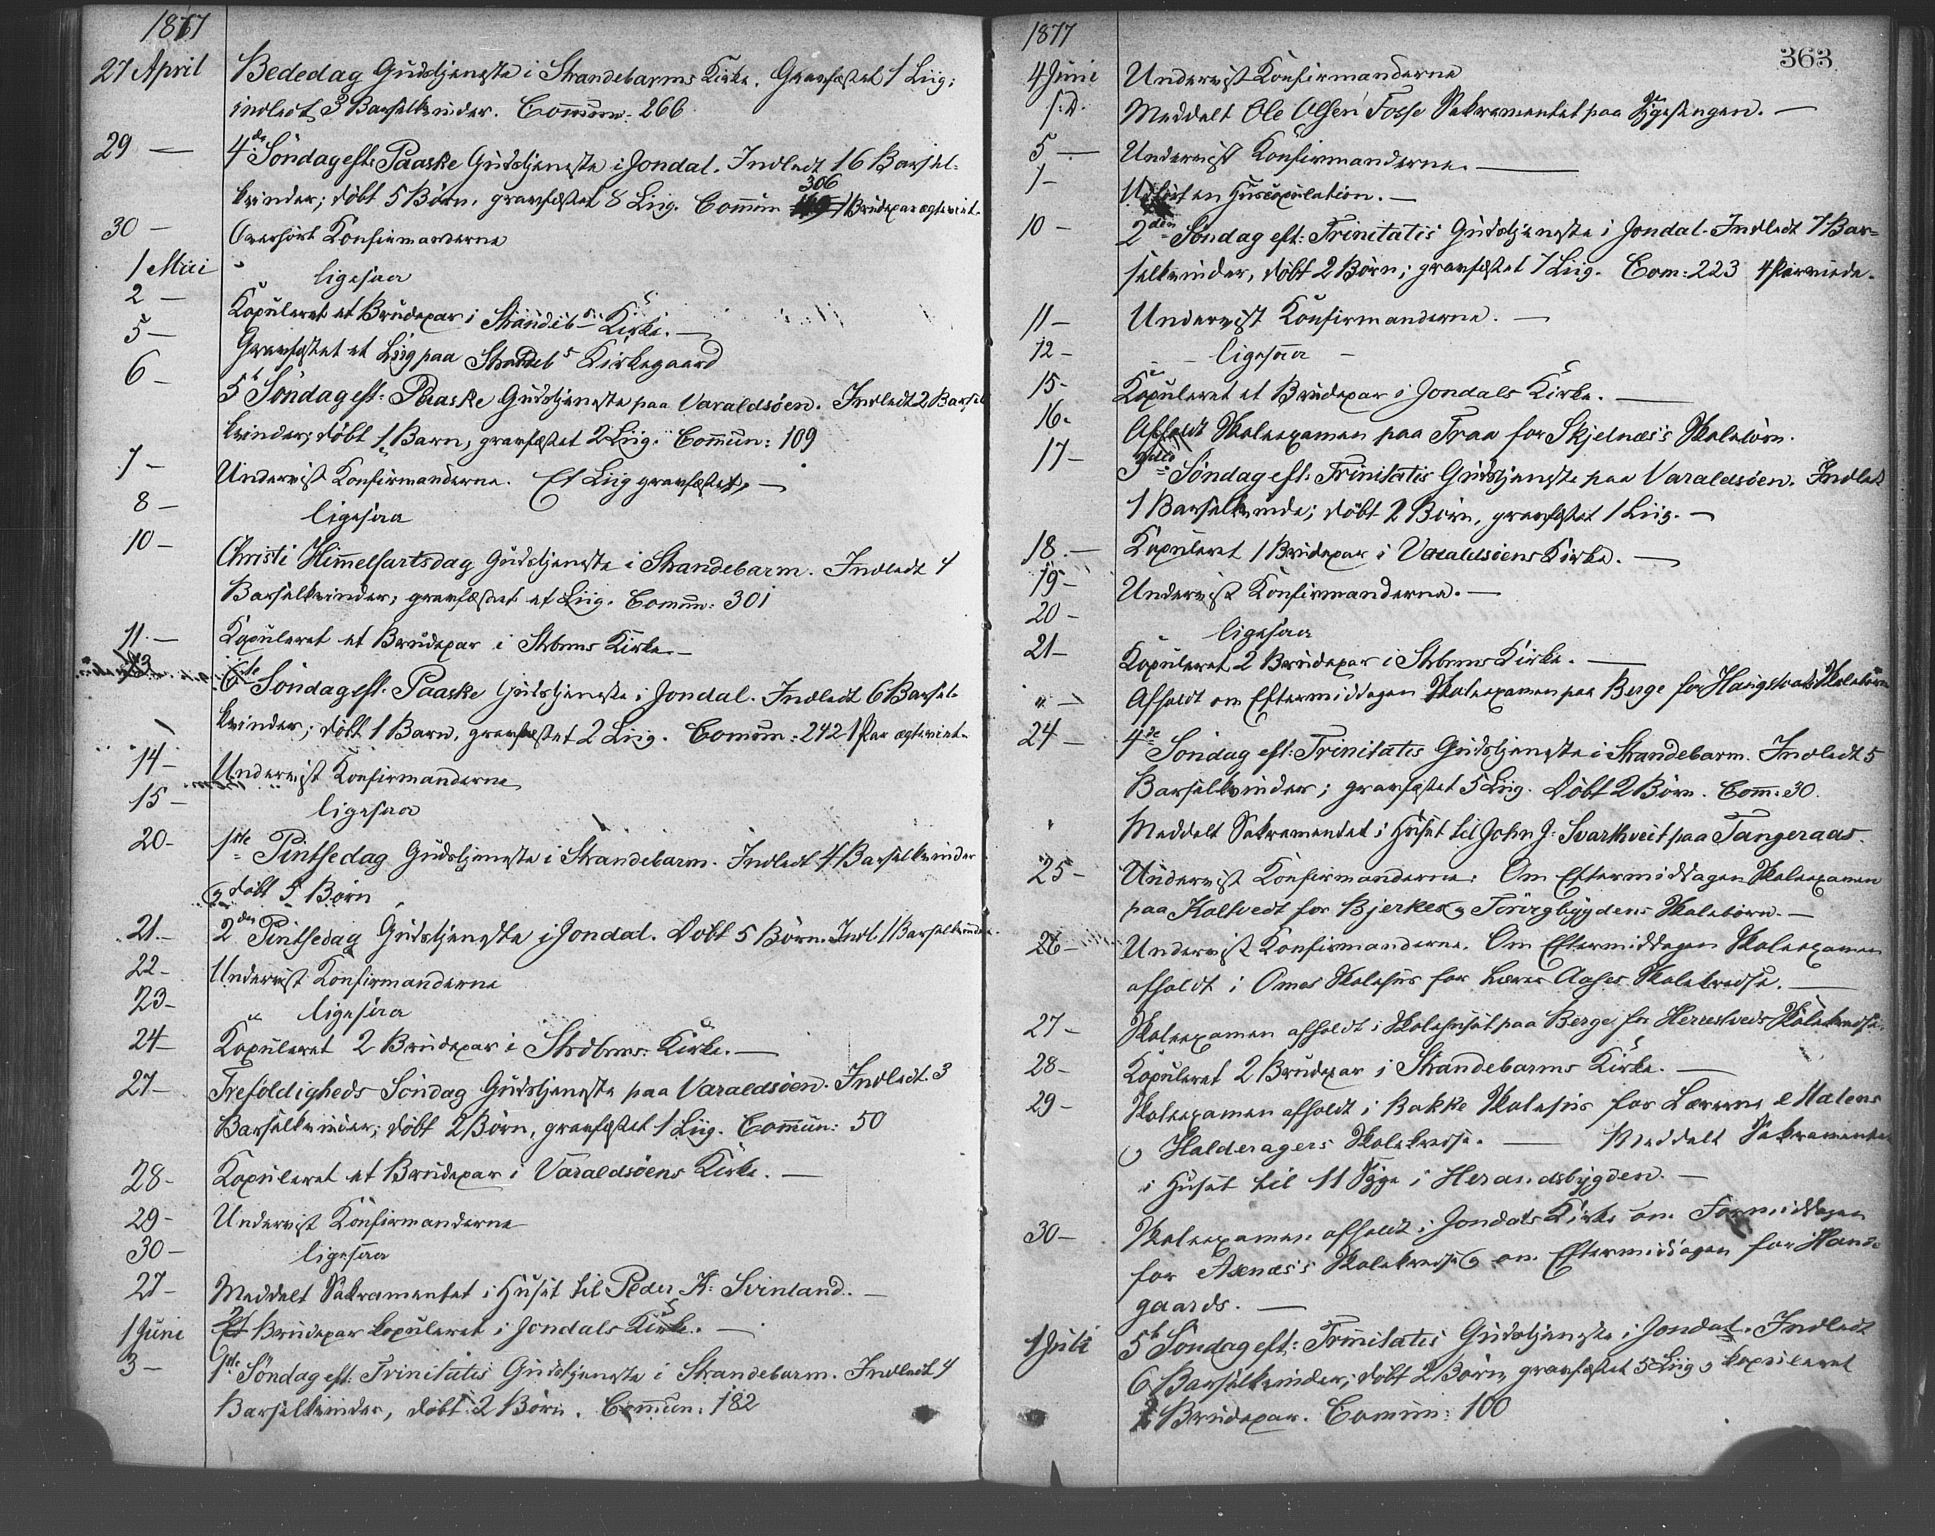 1877
27 April Bededag Gudstjeneste i Strandebarms Kirke. Gravfæstet 1 Liig;
indledt 3 Barselkvinder. Commun: 266
29 — 4de Söndag eft: Paaske Gudstjeneste i Jondal. Indledt 16 Barsel-
kvinder; döbt 5 Börn, gravfæstet 8 Liig. Commun 306 1 Brudepar ægteviet.
30 — Overhört Konfirmanderne
1 Mai ligesaa
2 — Kopuleret et Brudepar i Strandebs Kirke. —
5 — Gravfæstet et Liig paa Strandebs Kirkegaard
6 — 5t Söndag eft: Paaske Gudstjeneste paa Varaldsöen. Indledt 2 Barsel
kvinder; döbt 1 Barn, gravfæstet 2 Liig. Commun: 109
7 — Undervist Konfirmanderne. Et Liig gravfæstet. —
8 — ligesaa
10 — Christi Himmelfartsdag Gudstjeneste i Strandebarm. Indledt 4
Barselkvinder; gravfæstet et Liig. Comun: 301
11. — Kopuleret et Brudepar i Strbms Kirke. —
13 6te Söndag eft. Paaske Gudstjeneste i Jondal. Indledt 6 Barsel-
kvinder; döbt 1 Barn, gravfæstet 2 Liig. Comun: 242 1 Par ægteviet.
14 — Undervist Konfirmanderne
15 — ligesaa
20 - 1ste Pintsedag Gudstjeneste i Strandebarm. Indledt 4 Barselkvinder
og döbt 5 Börn
21. — 2den Pintsedag Gudstjeneste i Jondal. Döbt 5 Börn. Indl. 1 Barselkvinde.
22 - Undervist Konfirmanderne
23 - ligesaa
24 — Kopuleret 2 Brudepar i Strdbms: Kirke. —
27 — Trefoldigheds Söndag Gudstjeneste paa Varaldsöen. Indledt 3
Barselkvinder; döbt 2 Börn, gravfæstet 1 Liig. Commun: 50
28 - Kopuleret et Brudepar i Varaldsöens Kirke. —
29 - Undervist Konfirmanderne
30 — ligesaa
27 — Meddelt Sakramentet i Huset til Peder K: Svinland. —
1 Juni Brudepar kopuleret i Jondals Kirke. —
3 — 1ste Söndag eft. Trinitatis Gudstjeneste i Strandebarm. Indledt 4
Barselkvinder, döbt 2 Börn. Commun: 182
1877
363
4 Juni Undervist Konfirmanderne
s.D. Meddelt Ole Olsen Fosse Sakramentet paa Sygesengen. —
5 — Undervist Konfirmanderne. —
7 — Udfört en Huscopulation. —
10 — 2den Söndag eft: Trinitatis Gudstjeneste i Jondal. Indledt 7 Bar=
selkvinder, döbt 2 Börn; gravfæstet 7 Liig. Com: 223 4 Par viede.
11 — Undervist Konfirmanderne. —
12 - ligesaa —
15 - Kopuleret et Brudepar i Jondals Kirke. —
16. Afholdt Skoleexamen paa Traa for Skjelnæs's Skolebörn.
17 — 3die Söndag eft: Trinitatis Gudstjeneste paa Varaldsöen. Indledt
1 Barselkvinde; döbt 2 Börn, gravfæstet 1 Liig. —
18. — Kopuleret 1 Brudepar i Varaldsöens Kirke. —
19 - Undervist Konfirmanderne. —
20 - ligesaa
21 - Kopuleret 2 Brudepar i Strbms Kirke. —
" — Afholdt om Eftermiddagen Skoleexamen paa Berge for Skolebörn
24 — 4de Söndag eft: Trinitatis Gudstjeneste i Strandebarm. Indledt 5
Barselkvinder; gravfæstet 5 Liig. Döbt 2 Börn. Comm: 30.
" Meddelt Sakramentet i Huset til John J: Svarkveit paa Tangeraas.
25 — Undervist Konfirmanderne. Om Eftermiddagen Skoleexamen
paa Koltvedt for Bjerkes og bygdens Skolebörn. —
26 — Undervist Konfirmanderne. Om Eftermiddagen Skoleexamen
afholdt i Omes Skolehus for Lærer Aases Skolekredse. —
27 — Skoleexamen afholdt i Skolehuset paa Berge for Skolekredse.
28 - Kopuleret 2 Brudepar i Strandebarms Kirke. —
29 - Skoleexamen afholdt i Bakke Skolehus for Lærerne
og Skolekredse. — Meddelt Sakramentet
i Huset til 11 Syge i Herandsbygden. —
30 — Skoleexamen afholdt i Jondals Kirke om Formiddagen
for Axnæs's Skolekreds og om Eftermiddagen for
gaards. —
1 Juli 5t Söndag eft: Trinitatis Gudstjeneste i Jondal. Indledt
6 Barselkvinder; döbt 2 Börn, gravfæstet 5 Liig og kopuleret
Brudepar. Comun: 100